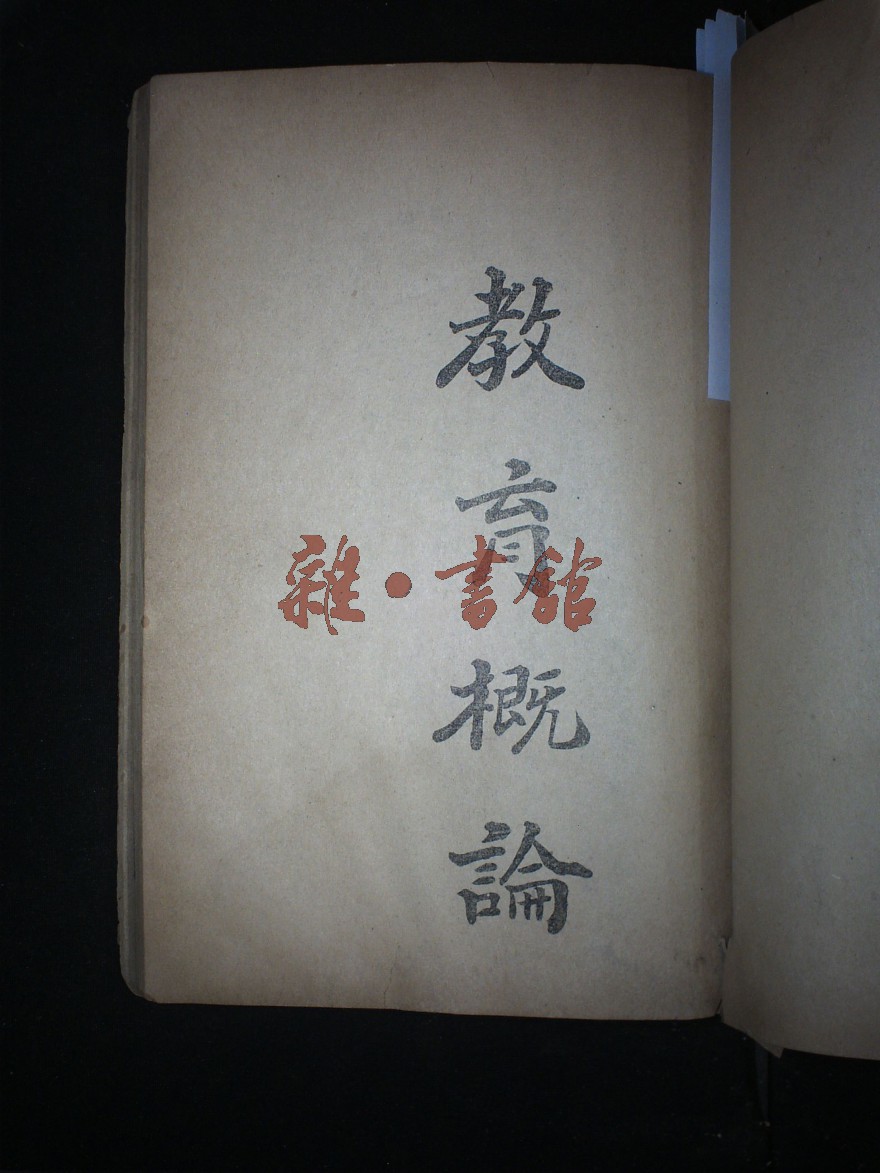 教育概論
雜·書館